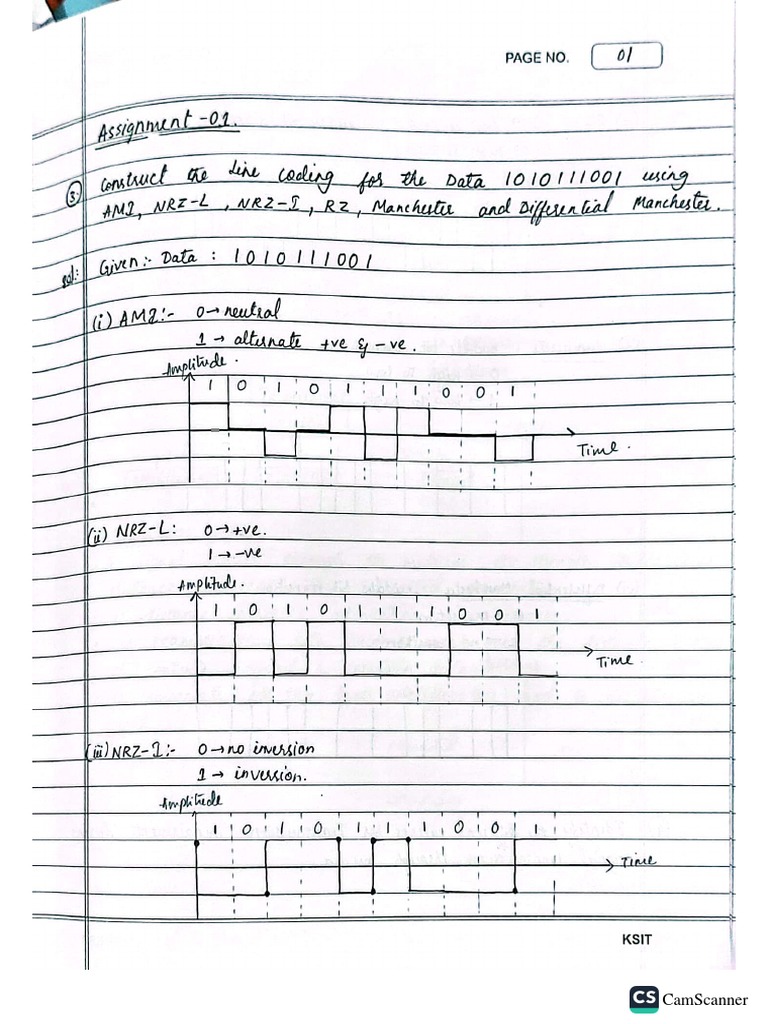 PAGE NO. 01
Assignment -01.
③ Construct the Line Coding for the Data 1010111001 using
AMI, NRZ-L, NRZ-I, RZ, Manchester and Differential Manchester.
sol: Given:- Data : 1010111001
(i) AMI:- 0→neutral
1 → alternate +ve & -ve.
Amplitude.
1 0 1 0 1 1 1 0 0 1
Time.
(ii) NRZ-L: 0→+ve.
1→-ve
Amplitude.
1 0 1 0 1 1 1 0 0 1
Time.
(iii) NRZ-I:- 0→no inversion
1→ inversion.
Amplitude
1 0 1 0 1 1 1 0 0 1
Time
KSIT
CS CamScanner